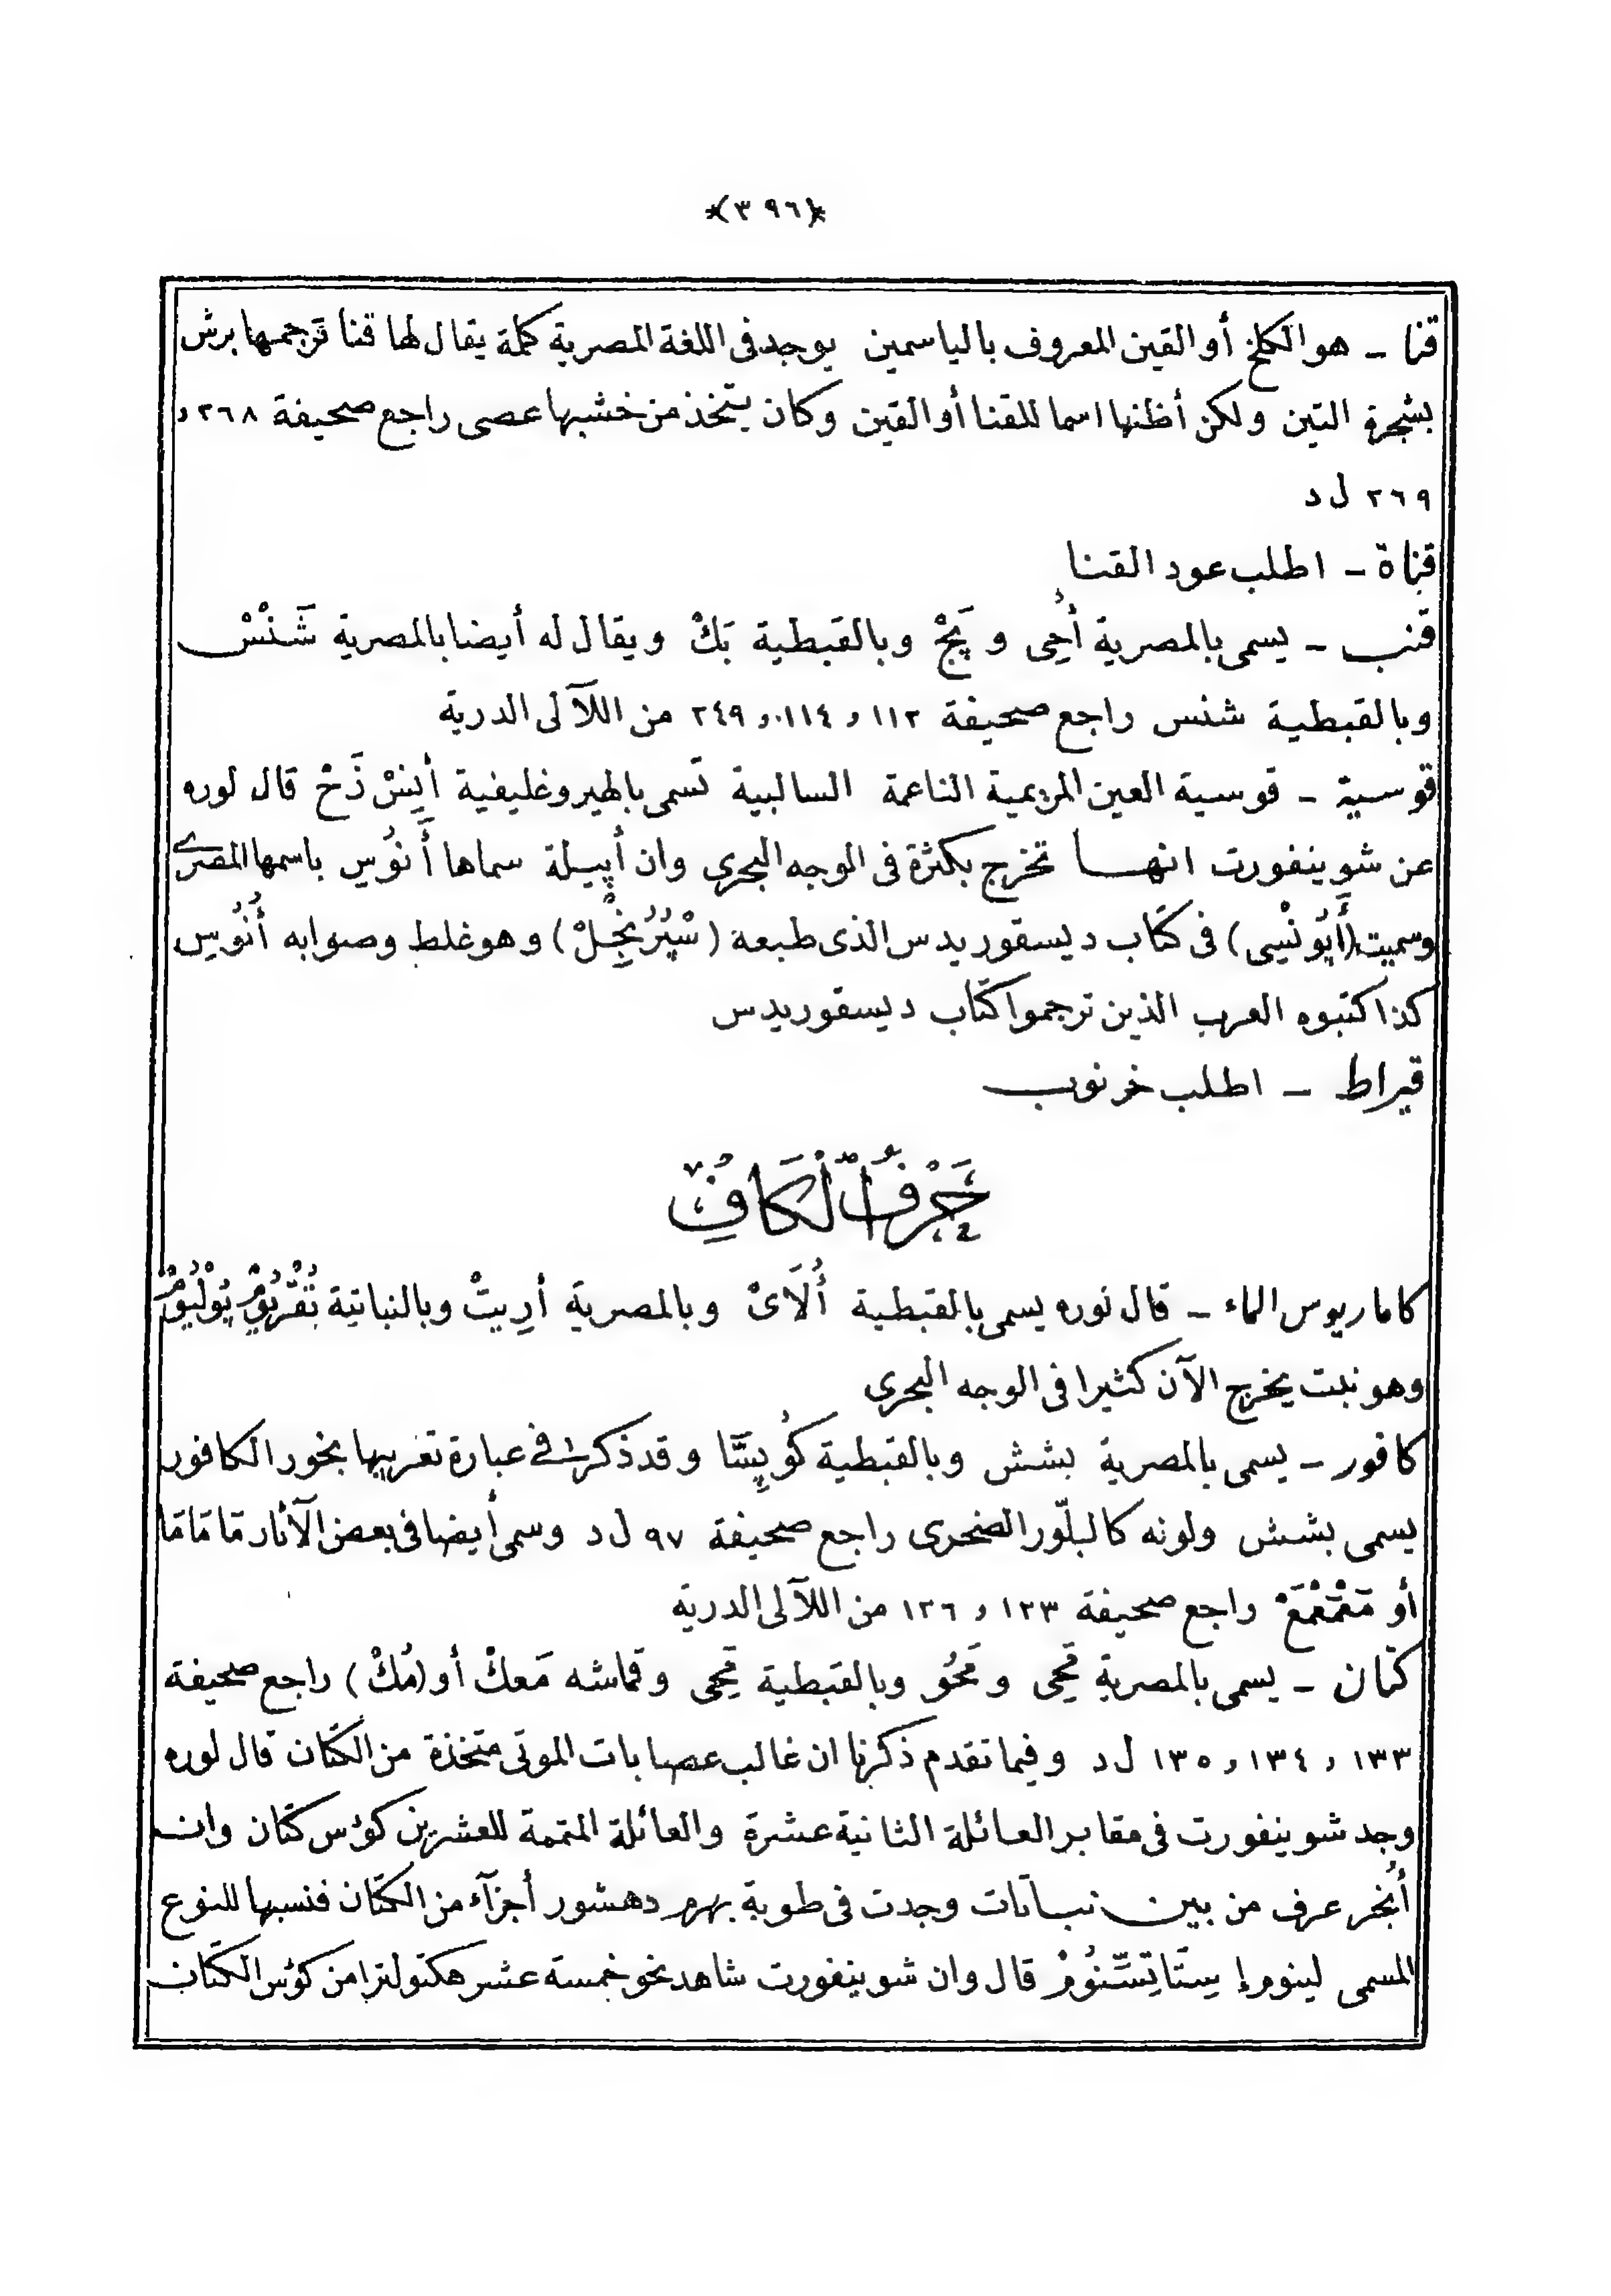 *(٣٩٦)*
قنا - هو الكلخ أو القين المعروف بالياسمين يوجد فى اللغة المصرية كلمة يقال لها قنا ترجمها برش
بشجرة التين ولكن أظنها اسما للقنا أو القين وكان يتخذ من خشبها عصى راجع صحيفة ٢٦٨ و
٢٦٩ ل د
قناة - اطلب عود القنا
قنب - يسمى بالمصرية أُحِى و پَجْ وبالقبطية بَكْ ويقال له أيضا بالمصرية شَنْسْ
وبالقبطية شنس راجع صحيفة ١١٢ و ١١٤ و ٢٤٩ من اللآلى الدرية
قوسية - قوسية العين المريمية الناعمة السالبية تسمى بالهيروغليفية أَبِنْسْ ذَخْ قال لوره
عن شوينفورت انها تخرج بكثرة فى الوجه البحرى وان أپيلة سماها أَنوُسِ باسمها المصرى
وسميت (أَپُونْسِى) فى كتاب ديسقوريدس الذى طبعه (سْپْرُنْجِلْ) وهو غلط وصوابه أُنُوسِ
كذا كتبوه العرب الذين ترجموا كتاب ديسقوريدس
قيراط - اطلب خرنوب
حَرْفُ الْكَافِ
كاماريوس الماء - قال لوره يسمى بالقبطية أُلَاىْ وبالمصرية أرِيتْ وبالنباتية تُقْرِيُومْ پُوْلْيُومْ
وهو نبت يخرج الآن كثيرا فى الوجه البحرى
كافور - يسمى بالمصرية بشش وبالقبطية كُوپِسَّا وقد ذكرت فى عبارة تعريبها بخور الكافور
يسمى بشش ولونه كالبلّور الصخرى راجع صحيفة ٩٧ ل د وسمى أيضا فى بعض الآثار مَامَامَا
أو مَعْمْعْمَعْ راجع صحيفة ١٢٣ و ١٢٦ من اللآلى الدرية
كتّان - يسمى بالمصرية مَحِى و مَحُو وبالقبطية مَحِى وقماشه مَعكْ أو (مُكْ) راجع صحيفة
١٣٣ و ١٣٤ و ١٣٥ ل د وفيما تقدم ذكرنا ان غالب عصابات الموتى متخذة من الكتّان قال لوره
وجد شوينفورت فى مقابر العائلة الثانية عشرة والعائلة المتممة للعشرين كوؤس كتّان وان
أُنْجر عرف من بين نباتات وجدت فى طوبة بهرم دهشور أجزآء من الكتان فنسبها للنوع
المسمى لينوم إِسِتَاتِسِّنُومْ قال وان شوينفورت شاهد نحو خمسة عشر هكتولترا من كوؤس الكتان